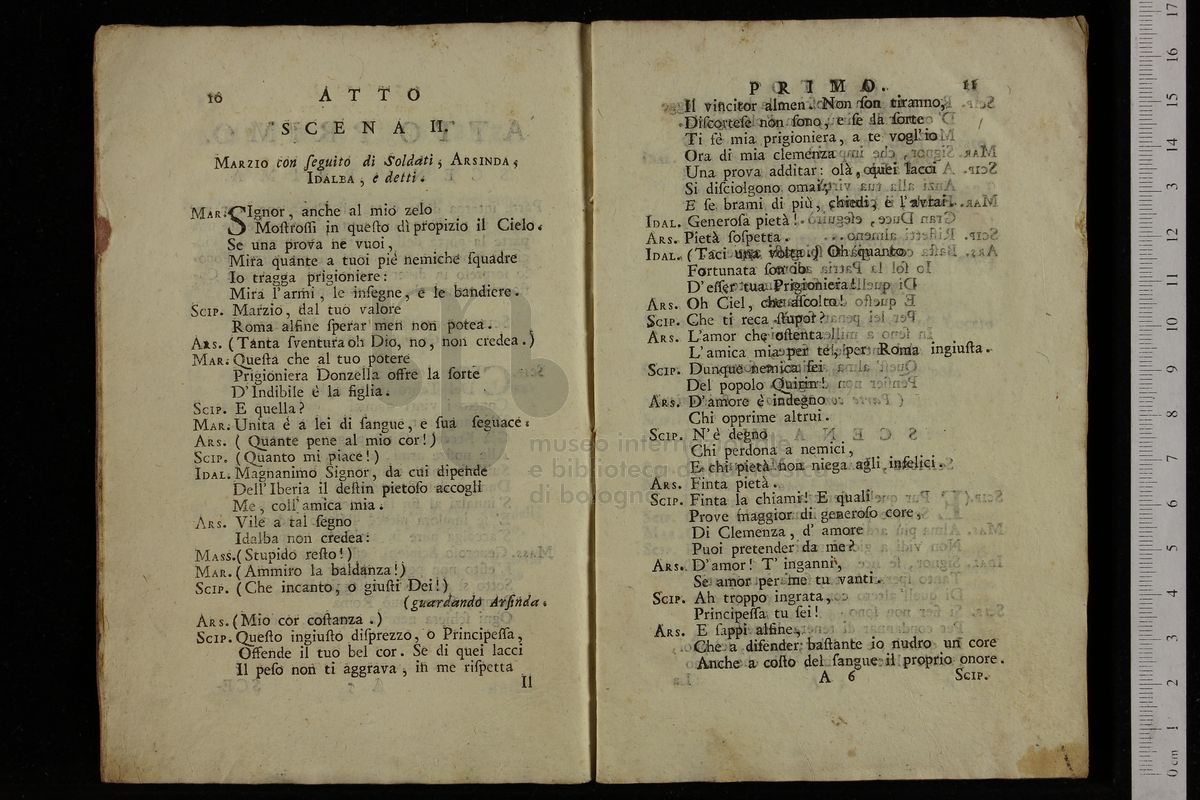 10 ATTO
SCENA II.
MARZIO con ſeguito di Soldati, ARSINDA,
IDALBA, e detti.
MAR. SIgnor, anche al mio zelo
Moſtroſſi in queſto dì propizio il Cielo.
Se una prova ne vuoi,
Mira quante a tuoi piè nemiche ſquadre
Io tragga prigioniere:
Mira l'armi, le inſegne, e le bandiere.
SCIP. Marzio, dal tuo valore
Roma alfine ſperar men non potea.
ARS. (Tanta ſventura oh Dio, no, non credea.)
MAR. Queſta che al tuo potere
Prigioniera Donzella offre la ſorte
D'Indibile è la figlia.
SCIP. E quella?
MAR. Unita è a lei di ſangue, e ſua ſeguace.
ARS. (Quante pene al mio cor!)
SCIP. (Quanto mi piace!)
IDAL. Magnanimo Signor, da cui dipende
Dell'Iberia il deſtin pietoſo accogli
Me, coll'amica mia.
ARS. Vile a tal ſegno
Idalba non credea:
MASS. (Stupido reſto!)
MAR. (Ammiro la baldanza!)
SCIP. (Che incanto, o giuſti Dei!)
(guardando Arſinda.
ARS. (Mio cor coſtanza.)
SCIP. Queſto ingiuſto diſprezzo, o Principeſſa,
Offende il tuo bel cor. Se di quei lacci
Il peſo non ti aggrava, in me riſpetta
Il
PRIMO. 11
Il vincitor almen. Non ſon tiranno,
Diſcorteſe non ſono, e ſe la ſorte
Ti fè mia prigioniera, a te vogl'io
Ora di mia clemenza
Una prova additar: olà, quei lacci
Si diſciolgono omai,
E ſe brami di più, chiedi, e l'avrai.
IDAL. Generoſa pietà!
ARS. Pietà ſoſpetta.
IDAL. (Taci una volta.) Oh quanto
Fortunata ſon io
D'eſſer tua Prigioniera!
ARS. Oh Ciel, che aſcolto!
SCIP. Che ti reca ſtupor?
ARS. L'amor che oſtenta
L'amica mia per te, per Roma ingiuſta.
SCIP. Dunque nemica ſei
Del popolo Quirin!
ARS. D'amore è indegno
Chi opprime altrui.
SCIP. N'è degno
Chi perdona a nemici,
E chi pietà non niega agli infelici.
ARS. Finta pietà.
SCIP. Finta la chiami! E quali
Prove maggior di generoſo core,
Di Clemenza, d'amore
Puoi pretender da me?
ARS. D'amor! T'inganni,
Se amor per me tu vanti.
SCIP. Ah troppo ingrata,
Principeſſa tu ſei!
ARS. E ſappi alfine,
Che a difender baſtante io nudro un core
Anche a coſto del ſangue il proprio onore.
A 6 SCIP.
museo internazionale
e biblioteca della musica
di bologna